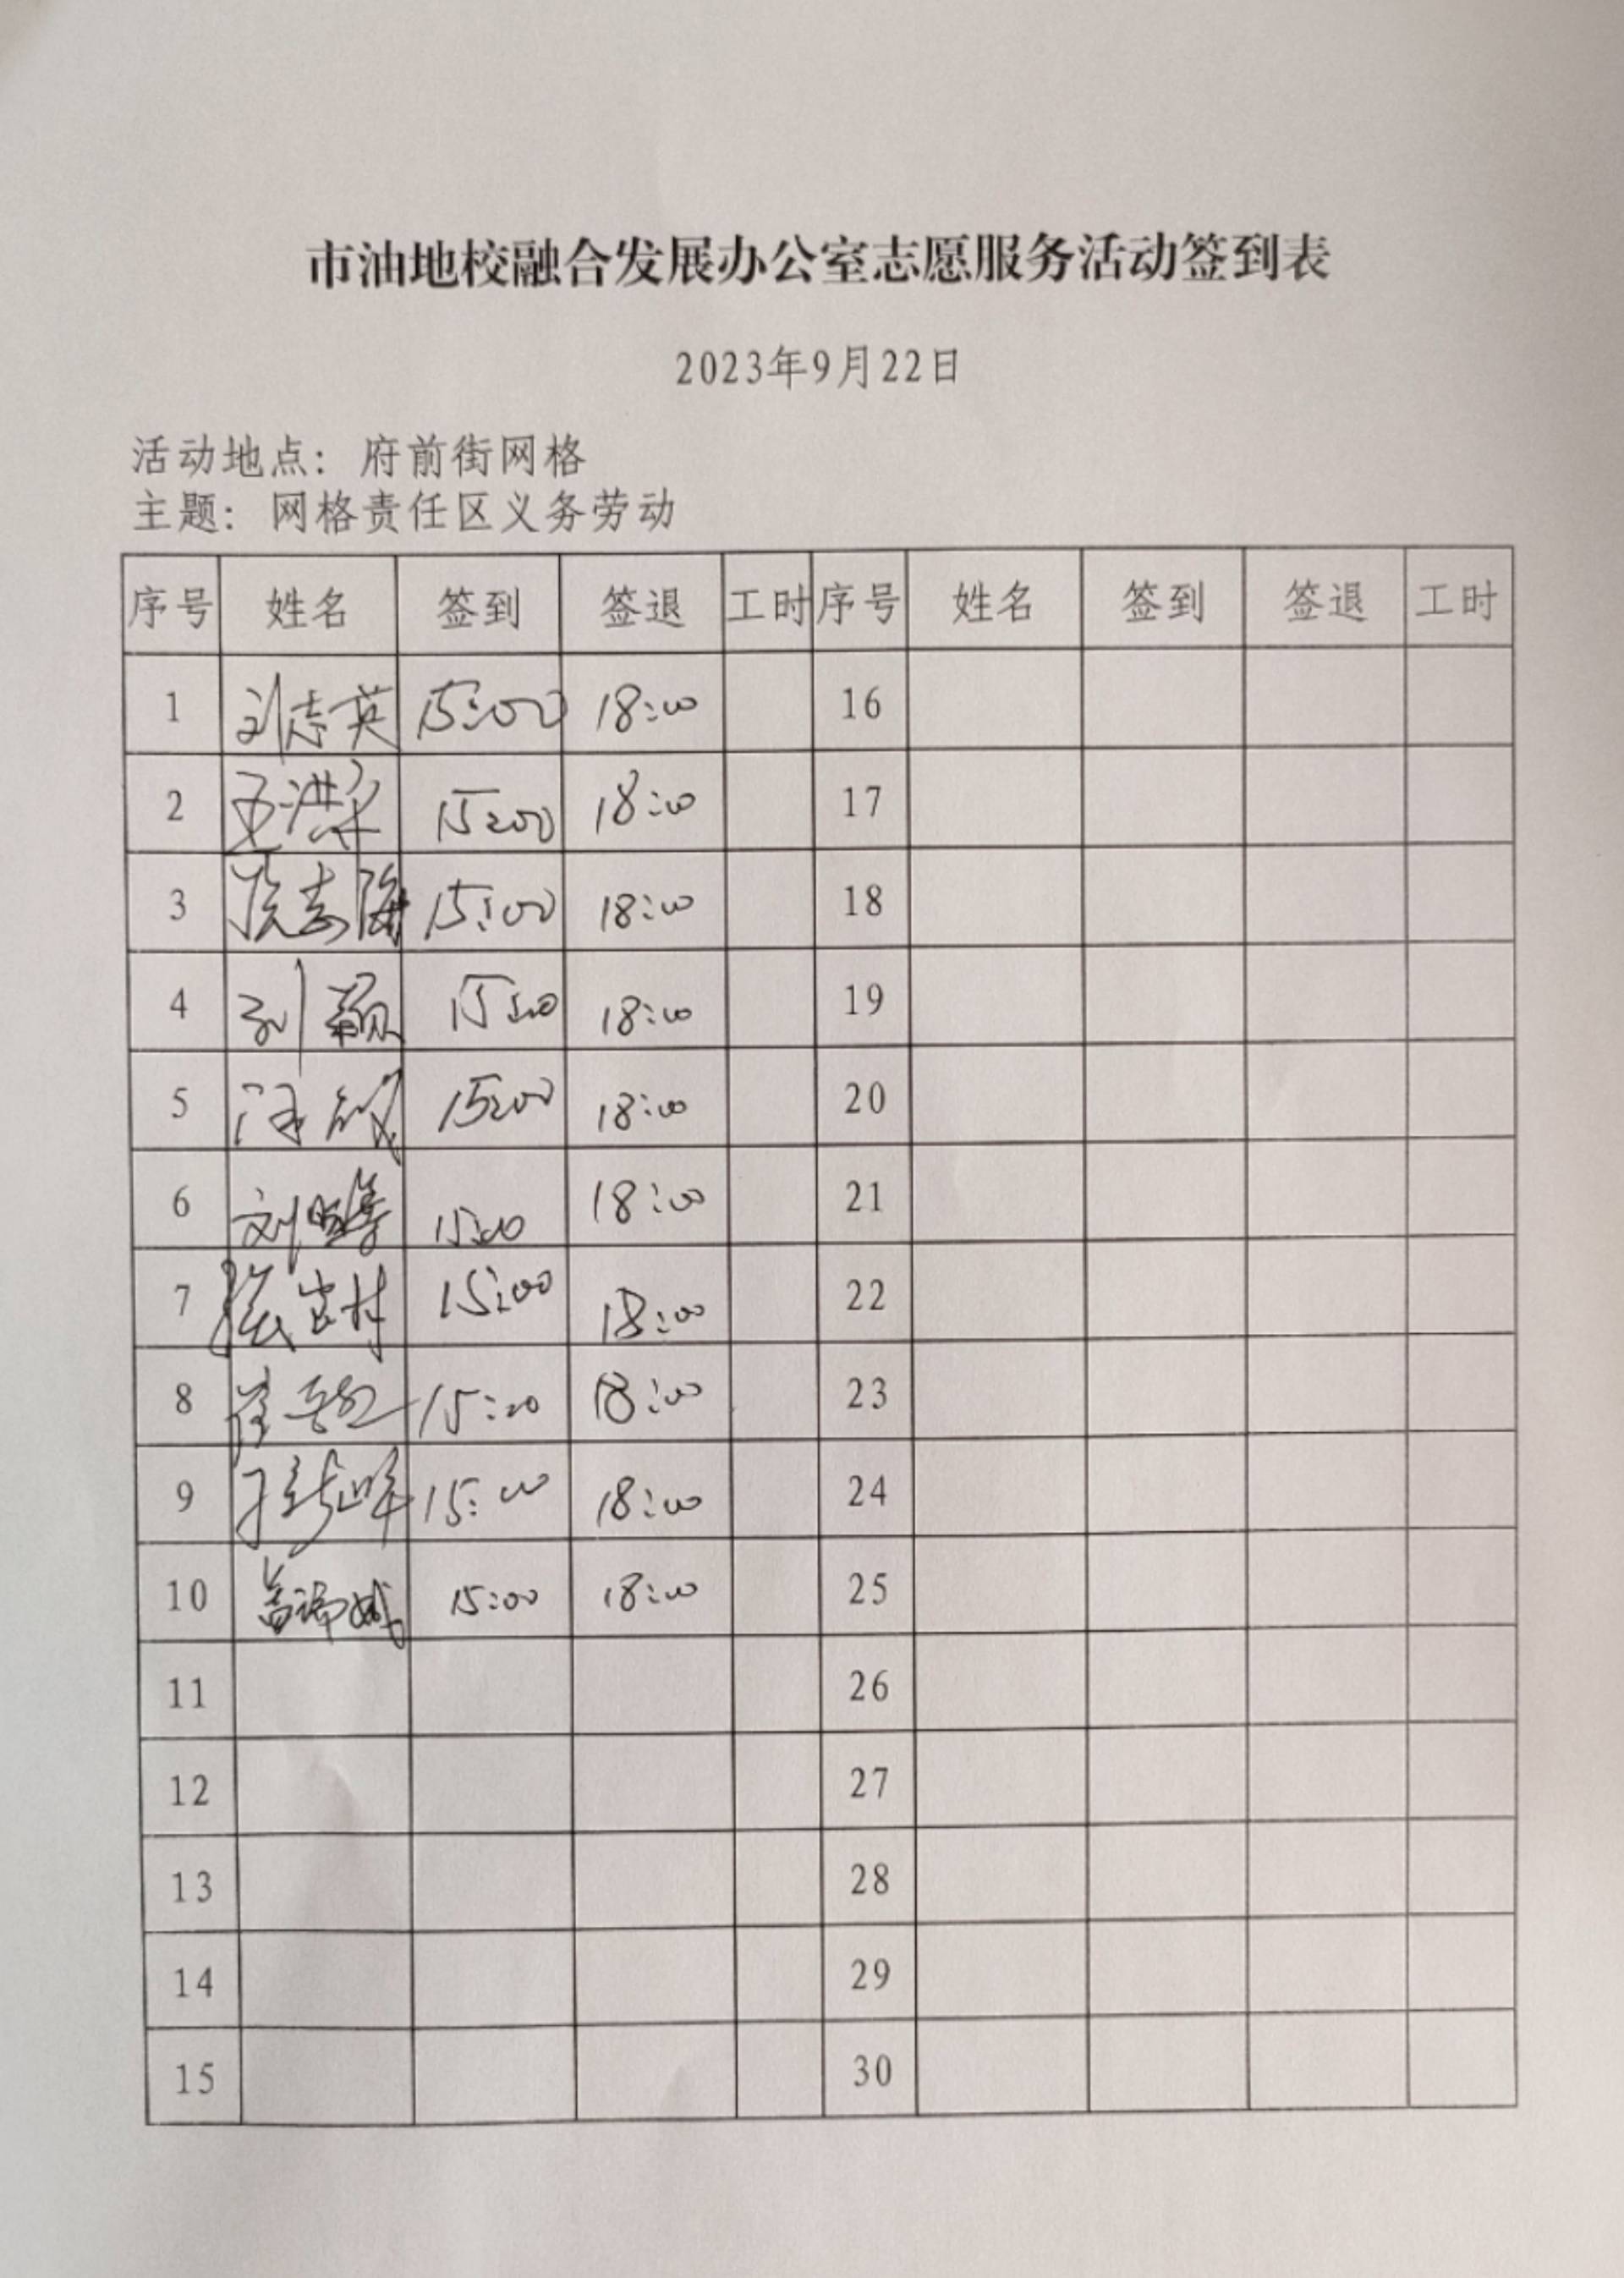 市油地校融合发展办公室志愿服务活动签到表
2023年9月22日
活动地点：府前街网格
主题：网格责任区义务劳动
序号 姓名 签到 签退 工时 序号 姓名 签到 签退 工时
1 刘志英 15:00 18:00 16
2 15:00 18:00 17
3 侯志海 15:00 18:00 18
4 刘颖 15:00 18:00 19
5 15:00 18:00 20
6 15:00 18:00 21
7 15:00 18:00 22
8 15:00 18:00 23
9 15:00 18:00 24
10 15:00 18:00 25
11 26
12 27
13 28
14 29
15 30